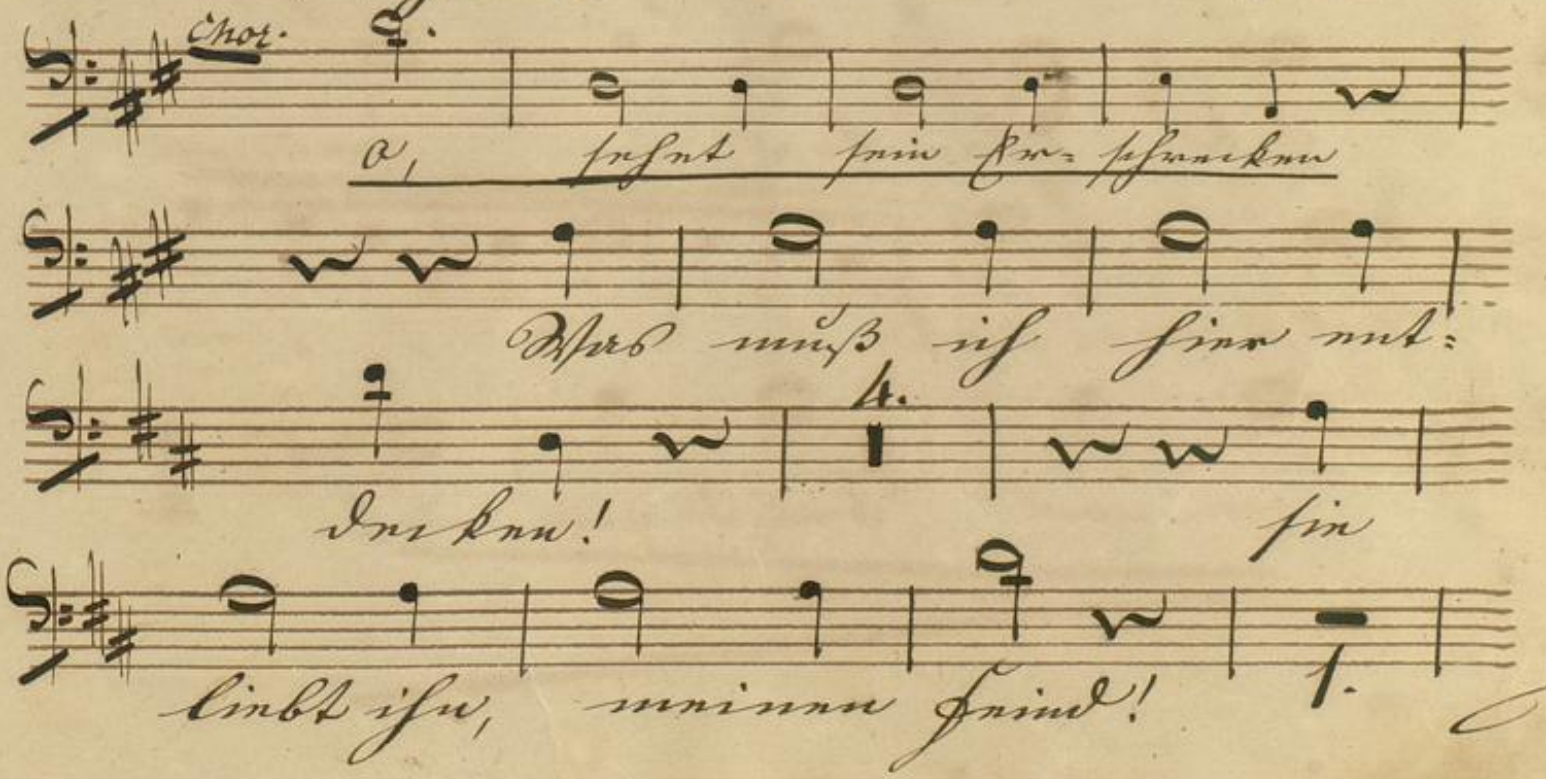 Chor.
O, sehet sein Er= schrecken
Was muß ich hier ent=
4.
decken! sie
liebt ihn, meinen Feind!
1.